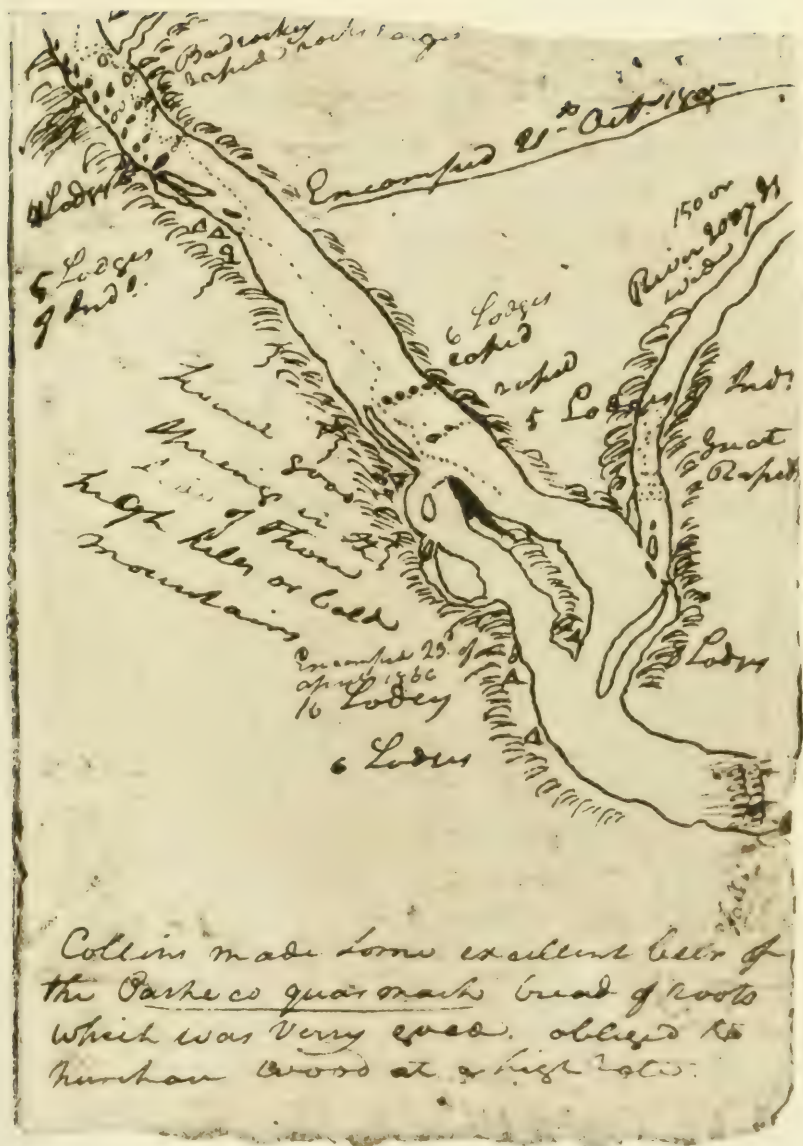 Bad rockey
rapid rocks larges
Encamped 21st Octr. 1805
4 Lodges
5 Lodges
of Inds.
150 or
River 200 yds
wide
6 Lodges
rapid
rapid
5 Lodges
Inds.
Great
Rapids
good
in the
of those
high hills or bald
mountains
Encamped 23d of
april 1806
16 Lodges
Lodges
6 Lodges
Collins made some excellent beer of
the Pasheco quarmash bread of roots
which was verry good. obliged to
purchase wood at a high rate.